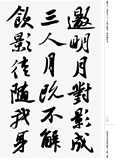 邀明月對影成
三人月既不解
飲影徒隨我身